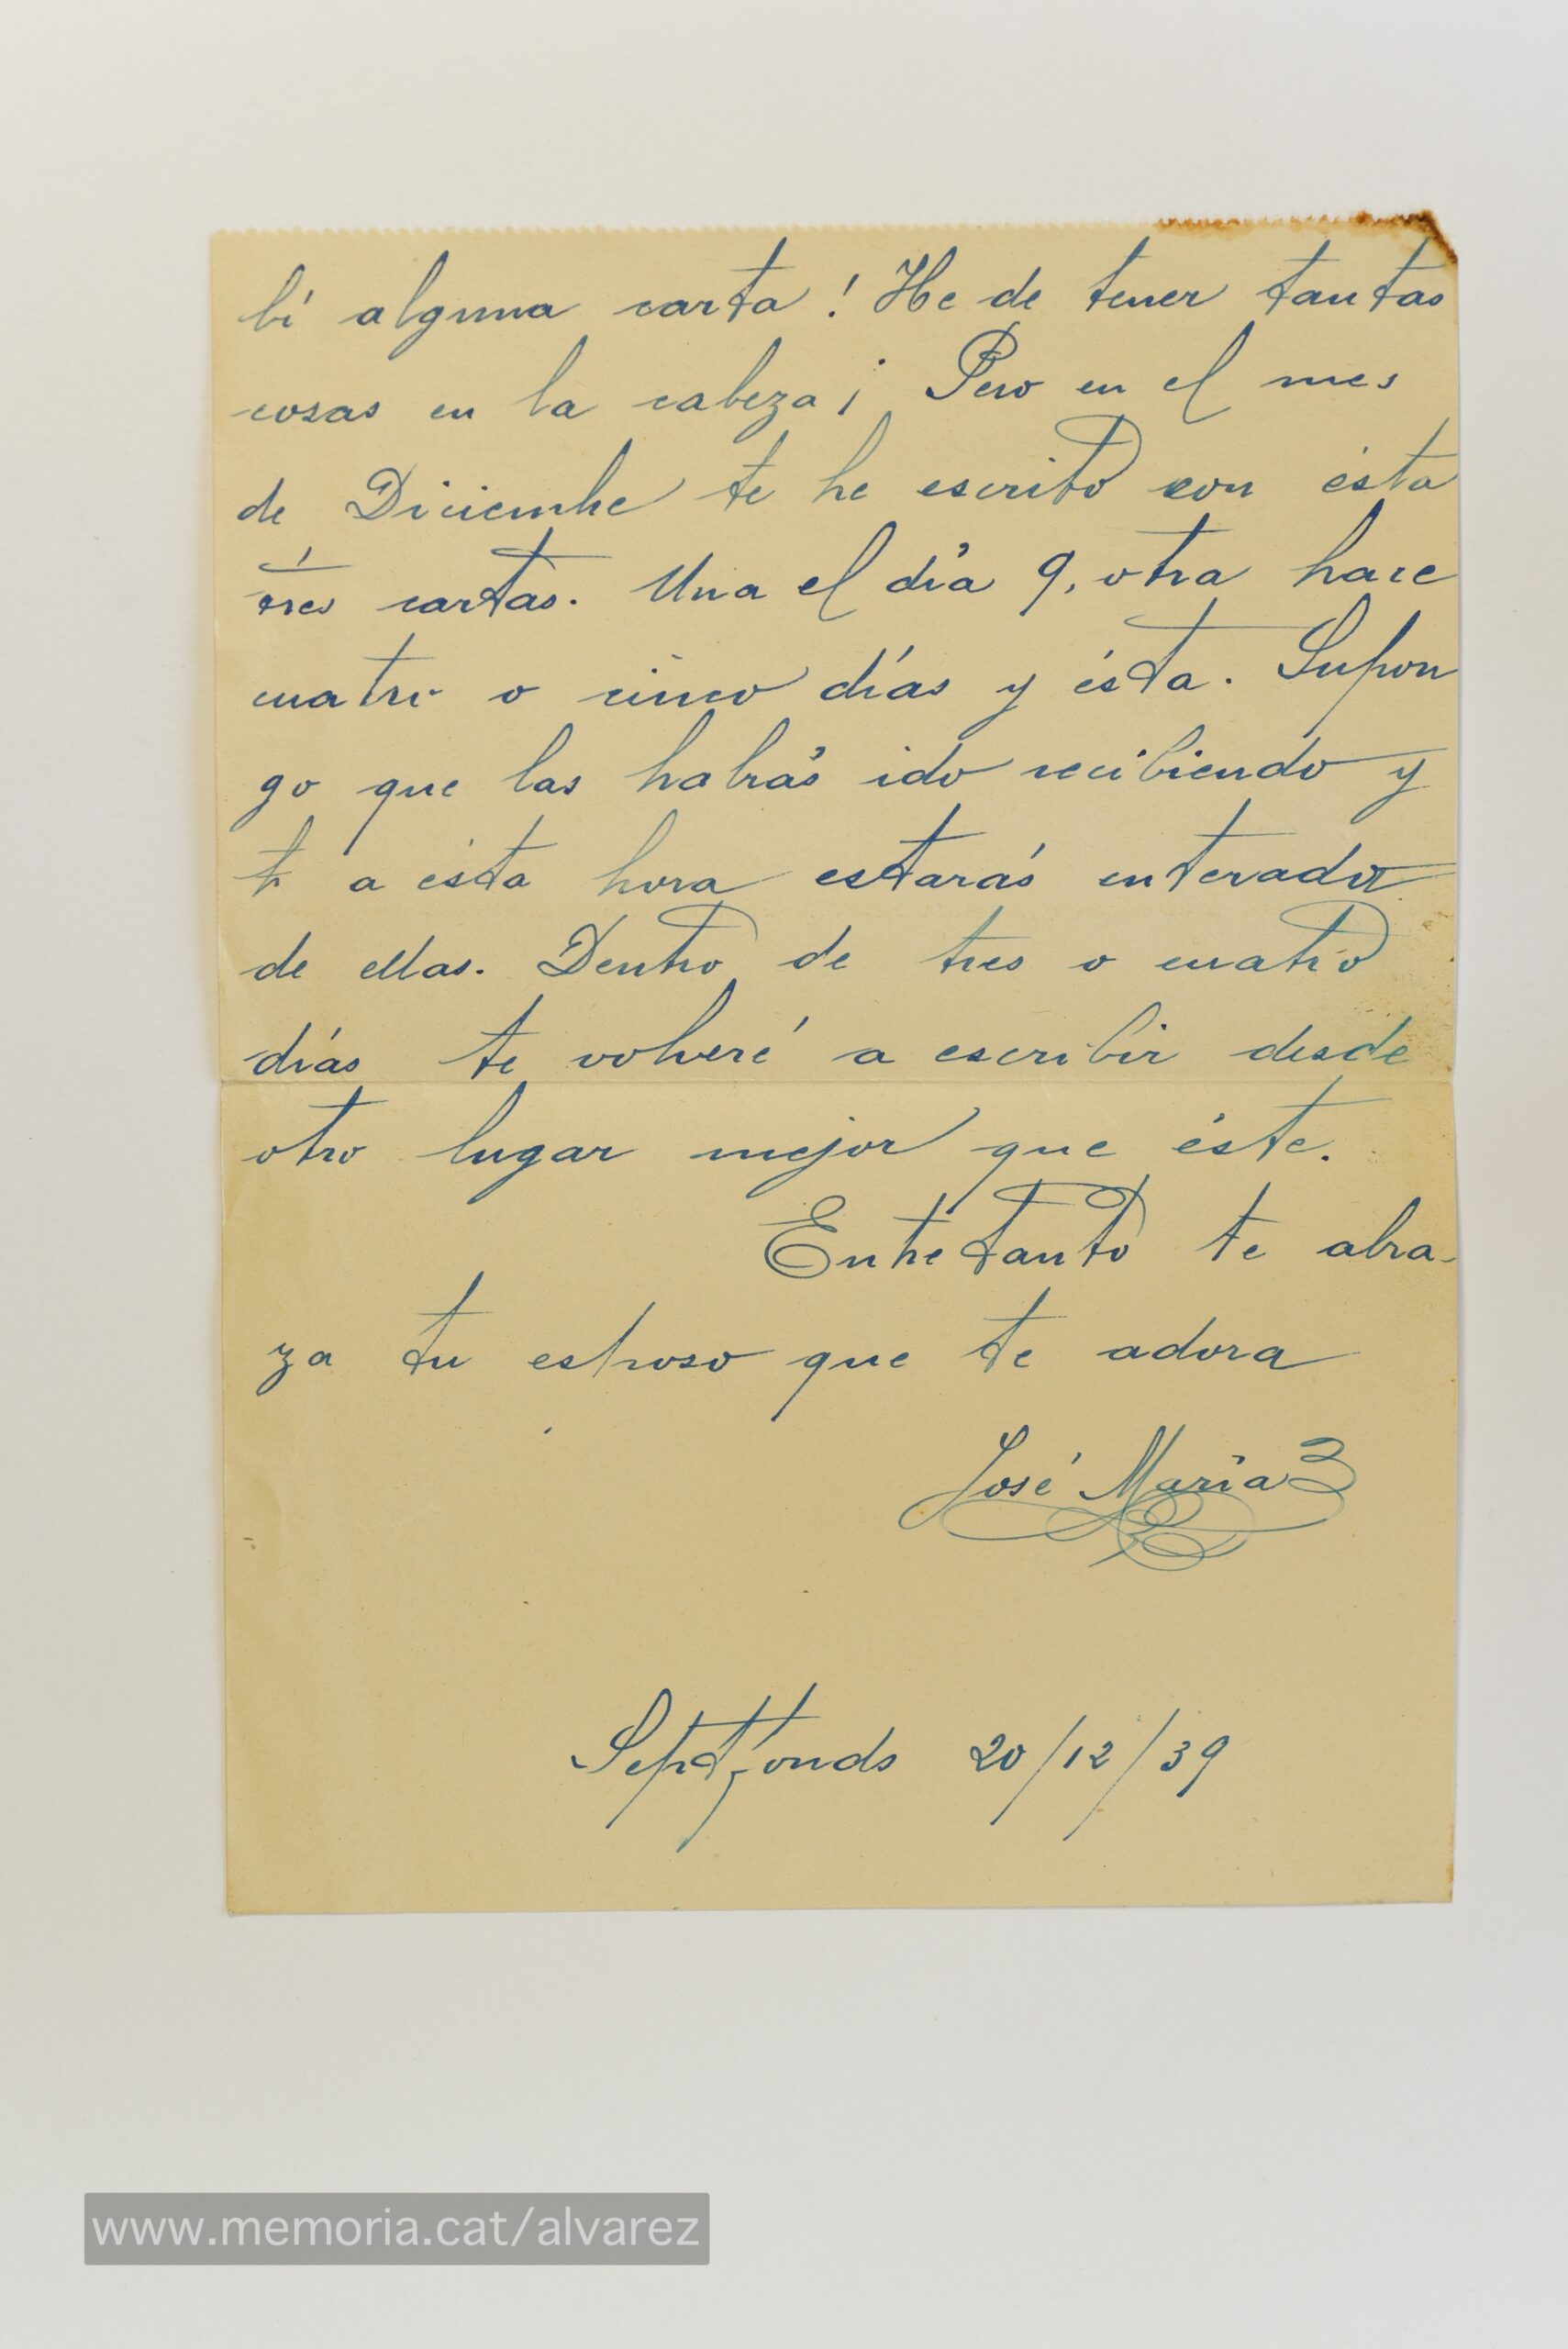 bí alguna carta! He de tener tantas
cosas en la cabeza ¡ Pero en el mes
de Diciembre te he escrito con ésta
tres cartas. Una el día 9, otra hace
cuatro o cinco días y ésta. Supon
go que las habrás ido recibiendo y
a ésta hora estarás enterada
de ellas. Dentro de tres o cuatro
días te volveré a escribir desde
otro lugar mejor que éste.
Entretanto te abra-
za tu esposo que te adora
José María
Septfonds 20/12/39
www.memoria.cat/alvarez